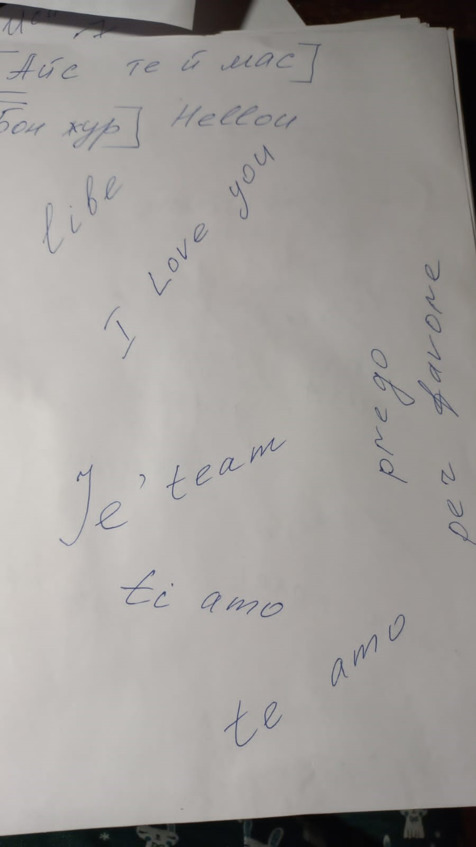 [Айс те й мас]
Бон жур] Hellou
libe
I Love you
prego
per favore
Je' team
ti amo
te amo